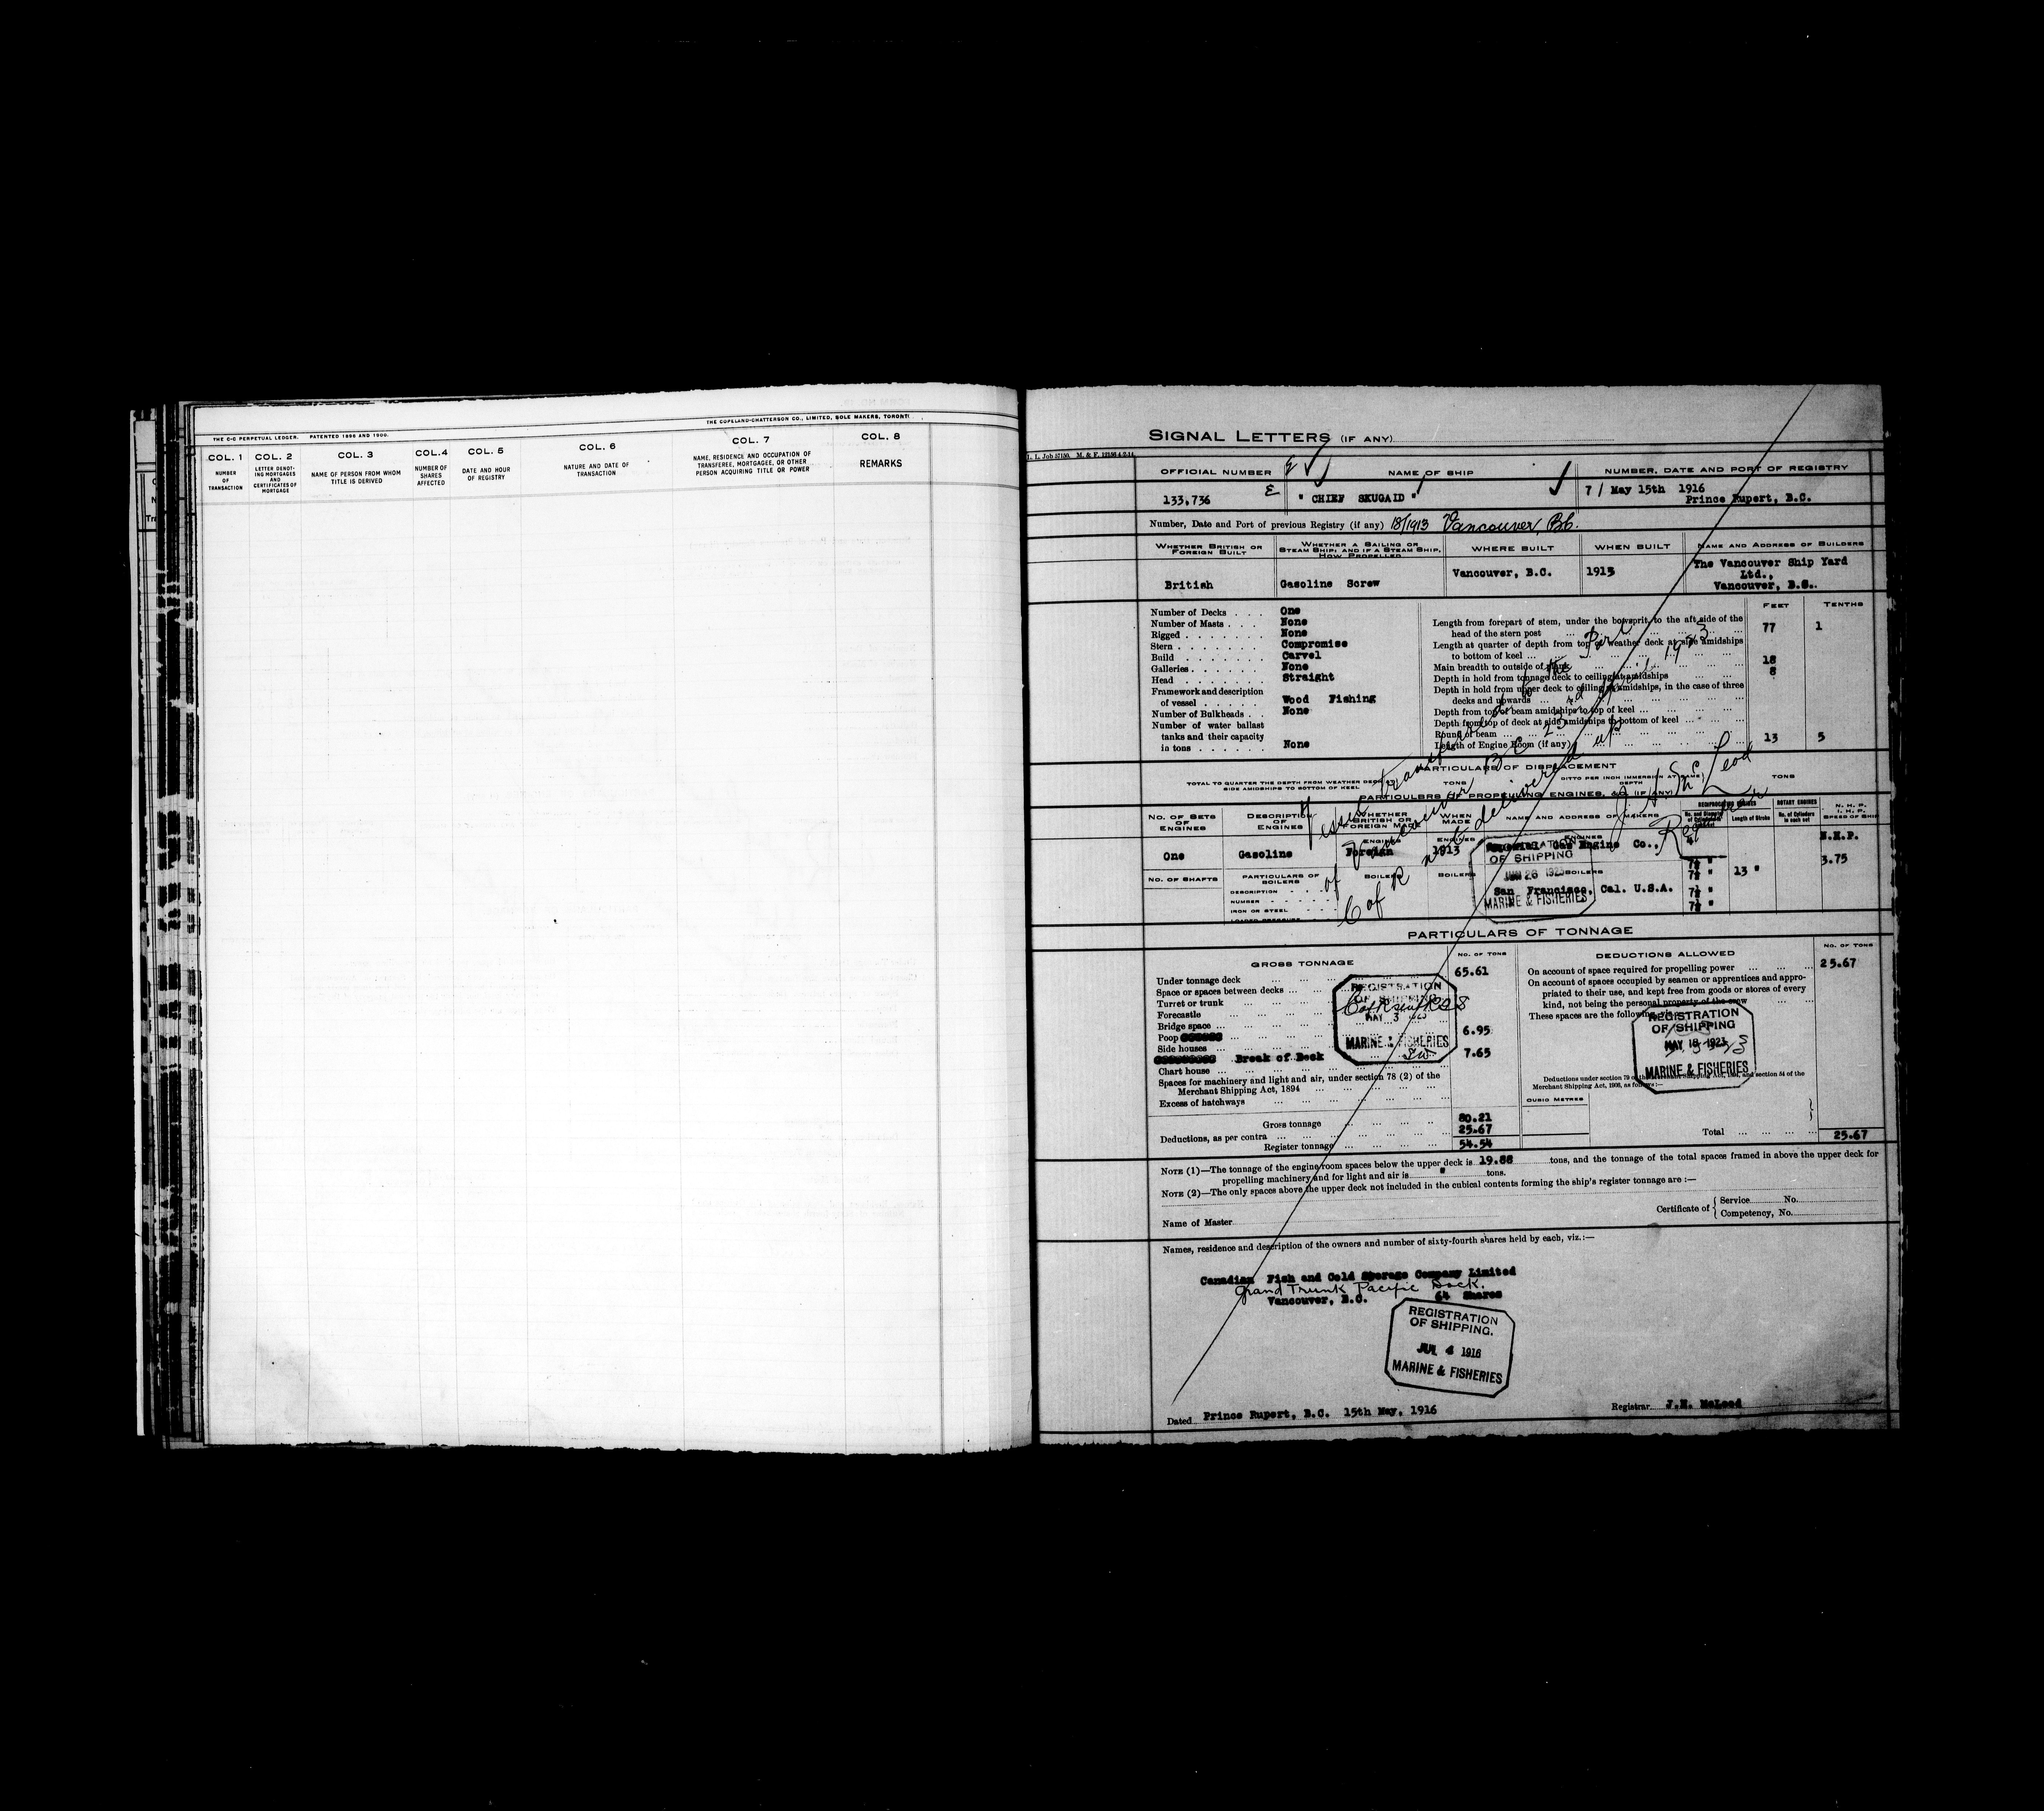 THE COPELAND-CHATTERSON CO., LIMITED, SOLE MAKERS, TORONTO
THE C-C PERPETUAL LEDGER. PATENTED 1896 AND 1900.
COL. 1 COL. 2 COL. 3 COL. 4 COL. 5 COL. 6 COL. 7 COL. 8
NUMBER OF TRANSACTION
LETTER DENOTING MORTGAGES AND CERTIFICATES OF MORTGAGE
NAME OF PERSON FROM WHOM TITLE IS DERIVED
NUMBER OF SHARES AFFECTED
DATE AND HOUR OF REGISTRY
NATURE AND DATE OF TRANSACTION
NAME, RESIDENCE AND OCCUPATION OF TRANSFEREE, MORTGAGEE, OR OTHER PERSON ACQUIRING TITLE OR POWER
REMARKS
SIGNAL LETTERS (IF ANY)
OFFICIAL NUMBER NAME OF SHIP NUMBER, DATE AND PORT OF REGISTRY
133,736 " CHIEF SKUGAID " 7 / May 15th 1916
Prince Rupert, B.C.
Number, Date and Port of previous Registry (if any) 18/1913 Vancouver, B.C.
WHETHER BRITISH OR FOREIGN BUILT
WHETHER A SAILING OR STEAM SHIP; AND IF A STEAM SHIP, HOW PROPELLED
WHERE BUILT WHEN BUILT NAME AND ADDRESS OF BUILDERS
British Gasoline Screw Vancouver, B.C. 1913 The Vancouver Ship Yard
Ltd.,
Vancouver, B.C.
FEET TENTHS
Number of Decks . . . One
Number of Masts . . . None
Rigged . . . . . . . None
Stern . . . . . . . . Compromise
Build . . . . . . . Carvel
Galleries . . . . . . None
Head . . . . . . . Straight
Framework and description
of vessel . . . . . . Wood Fishing
Number of Bulkheads . . None
Number of water ballast
tanks and their capacity
in tons . . . . . . None
Length from forepart of stem, under the bowsprit, to the aft side of the
head of the stern post 77 1
Length at quarter of depth from top of weather deck at side amidships
to bottom of keel
Main breadth to outside of plank 18
Depth in hold from tonnage deck to ceiling at amidships 8
Depth in hold from upper deck to ceiling at amidships, in the case of three
decks and upwards
Depth from top of beam amidships to top of keel
Depth from top of deck at side amidships to bottom of keel
Round of beam
Length of Engine Room (if any) 13 5
Vessel transferred to the Port
of Vancouver B C 23rd April 1923
C of R not delivered up
J. H. McLeod
Registrar
PARTICULARS OF DISPLACEMENT
TOTAL TO QUARTER THE DEPTH FROM WEATHER DECK AT SIDE AMIDSHIPS TO BOTTOM OF KEEL TONS DITTO PER INCH IMMERSION AT SAME DEPTH TONS
PARTICULARS OF PROPELLING ENGINES, &C. (IF ANY)
NO. OF SETS OF ENGINES
DESCRIPTION OF ENGINES
WHETHER BRITISH OR FOREIGN MADE
WHEN MADE
NAME AND ADDRESS OF MAKERS
RECIPROCATING ENGINES
Length of Stroke
ROTARY ENGINES
No. of Cylinders in each set
N. H. P.
I. H. P.
SPEED OF SHIP
ENGINES ENGINES ENGINES
One Gasoline Foreign 1913 Gas Engine Co.,
San Francisco, Cal. U.S.A.
7½ "
7½ "
7½ "
7½ "
13 "
N.H.P.
3.75
REGISTRATION
OF SHIPPING
JUN 26 1923
MARINE & FISHERIES
NO. OF SHAFTS PARTICULARS OF BOILERS BOILERS BOILERS BOILERS
DESCRIPTION
NUMBER
IRON OR STEEL
LOADED PRESSURE
PARTICULARS OF TONNAGE
GROSS TONNAGE NO. OF TONS
Under tonnage deck 65.61
Space or spaces between decks
Turret or trunk
Forecastle
Bridge space
Poop 6.95
Side houses
Break of Deck 7.65
Chart house
Spaces for machinery and light and air, under section 78 (2) of the
Merchant Shipping Act, 1894
Excess of hatchways
Gross tonnage 80.21
Deductions, as per contra 25.67
Register tonnage 54.54
REGISTRATION
OF SHIPPING
MAY 3 1923
MARINE & FISHERIES
DEDUCTIONS ALLOWED NO. OF TONS
On account of space required for propelling power 25.67
On account of spaces occupied by seamen or apprentices and appro-
priated to their use, and kept free from goods or stores of every
kind, not being the personal property of the crew
These spaces are the following, viz.:
REGISTRATION
OF SHIPPING
MAY 18 1923
MARINE & FISHERIES
Deductions under section 79 of the Merchant Shipping Act, 1894, and section 54 of the
Merchant Shipping Act, 1906, as follows:—
CUBIC METRES
Total 25.67
NOTE (1)—The tonnage of the engine room spaces below the upper deck is 19.88 tons, and the tonnage of the total spaces framed in above the upper deck for
propelling machinery and for light and air is " tons.
NOTE (2)—The only spaces above the upper deck not included in the cubical contents forming the ship's register tonnage are :—
Name of Master
Certificate of { Service No.
Competency, No.
Names, residence and description of the owners and number of sixty-fourth shares held by each, viz.:—
Canadian Fish and Cold Storage Company Limited
Grand Trunk Pacific Dock.
Vancouver, B.C. 64 Shares
REGISTRATION
OF SHIPPING.
JUL 4 1916
MARINE & FISHERIES
Dated Prince Rupert, B.C. 15th May, 1916 Registrar J.H. McLeod